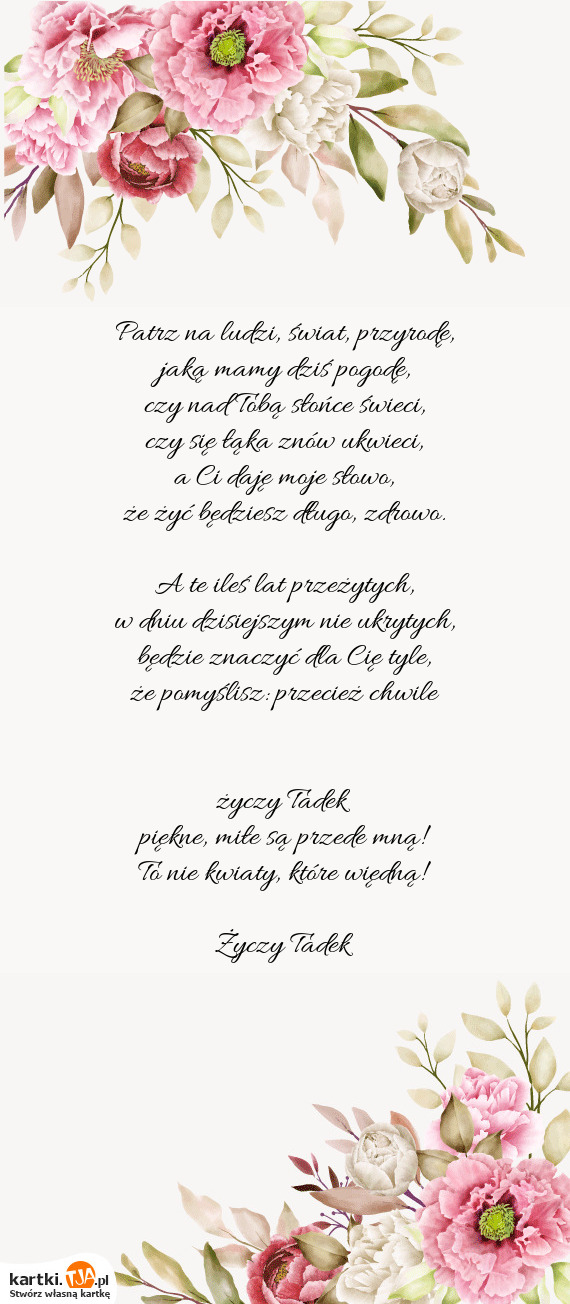 Patrz na ludzi, świat, przyrodę,
jaką mamy dziś pogodę,
czy nad Tobą słońce świeci,
czy się łąka znów ukwieci,
a Ci daję moje słowo,
że żyć będziesz długo, zdrowo.
A te ileś lat przeżytych,
w dniu dzisiejszym nie ukrytych,
będzie znaczyć dla Cię tyle,
że pomyślisz: przecież chwile
życzy Tadek
piękne, miłe są przede mną!
To nie kwiaty, które więdną!
Życzy Tadek
kartki.TJA.pl
Stwórz własną kartkę